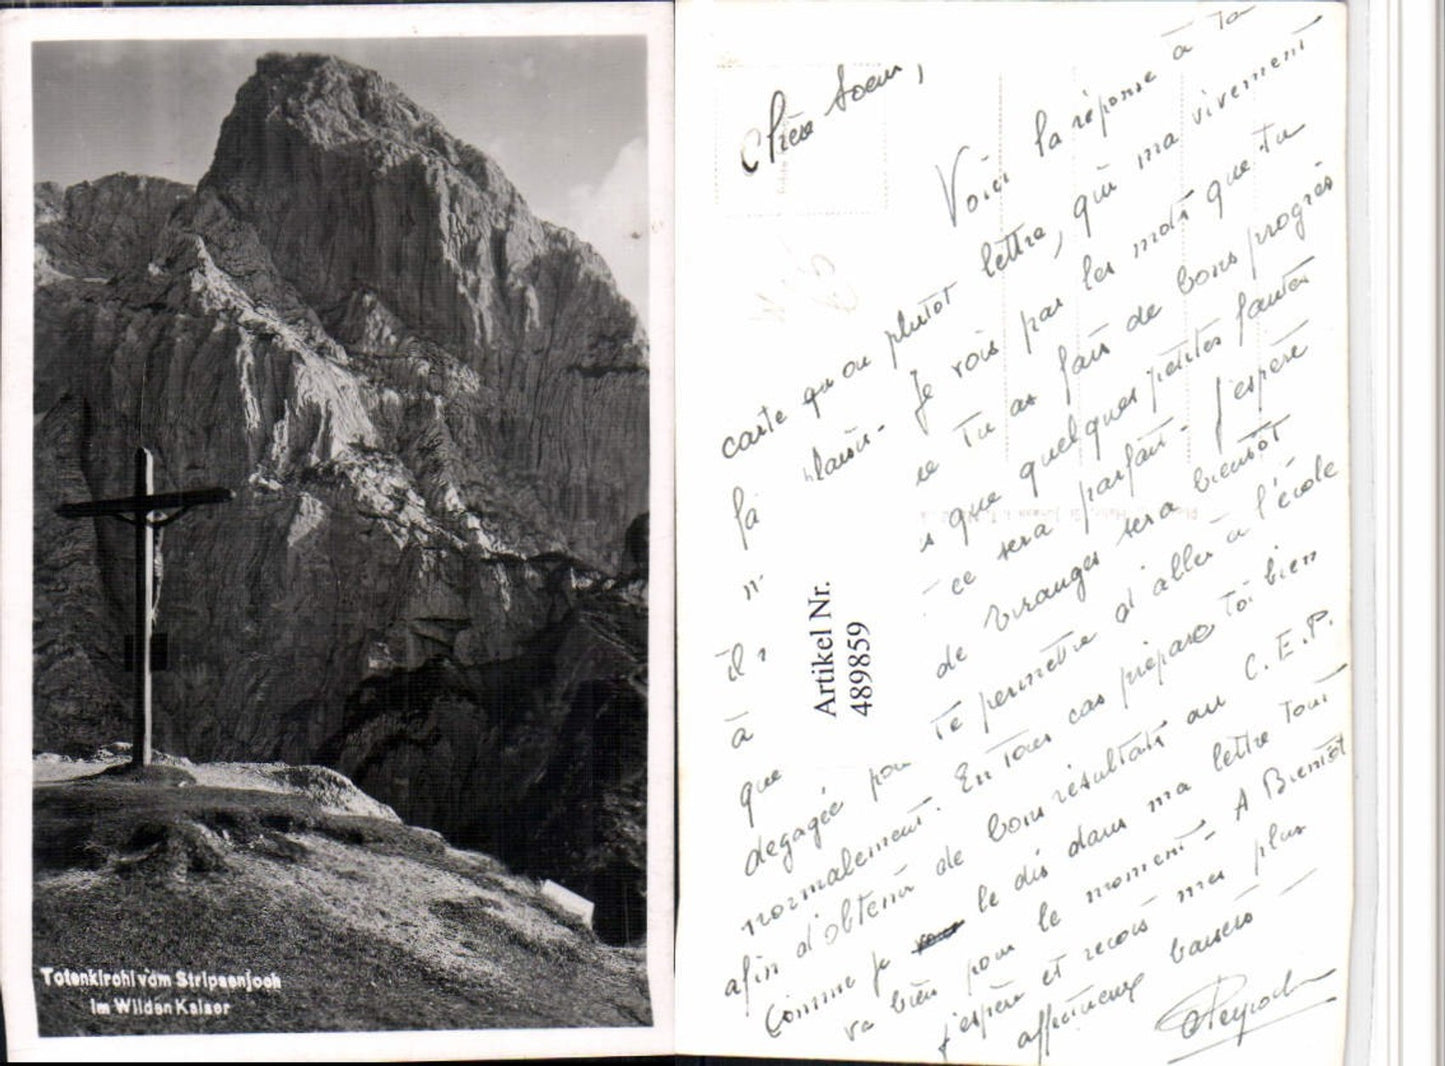 Totenkirchl vom Stripsenjoch
im Wilden Kaiser
Chère soeur,
Voici la réponse à ta
carte ou plutôt lettre, qui ma vivement
plaisir. Je vois par les mots que tu
Tu as fais de bons progrès
que quelques petites fautes
ce sera parfait. J'espère
de sera bientôt
dégagée pour te permettre d'aller à l'école
normalement. En tous cas prépare toi bien
afin d'obtenir de bons résultats au C.E.P.
Comme je le dis dans ma lettre tout
va bien pour le moment. A Bientôt
j'espère et reçois mes plus
affectueux baisers
Artikel Nr.
489859